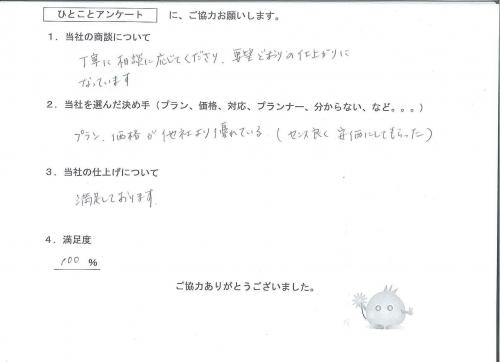 ひとことアンケート に、ご協力お願いします。
1．当社の商談について
丁寧に相談に応じてくださり、要望どおりの仕上がりに
なっています
2．当社を選んだ決め手（プラン、価格、対応、プランナー、分からない、など。。。）
プラン、価格が他社より優れている。（センス良く安価にしてもらった）
3．当社の仕上げについて
満足しております。
4．満足度
100 %
ご協力ありがとうございました。